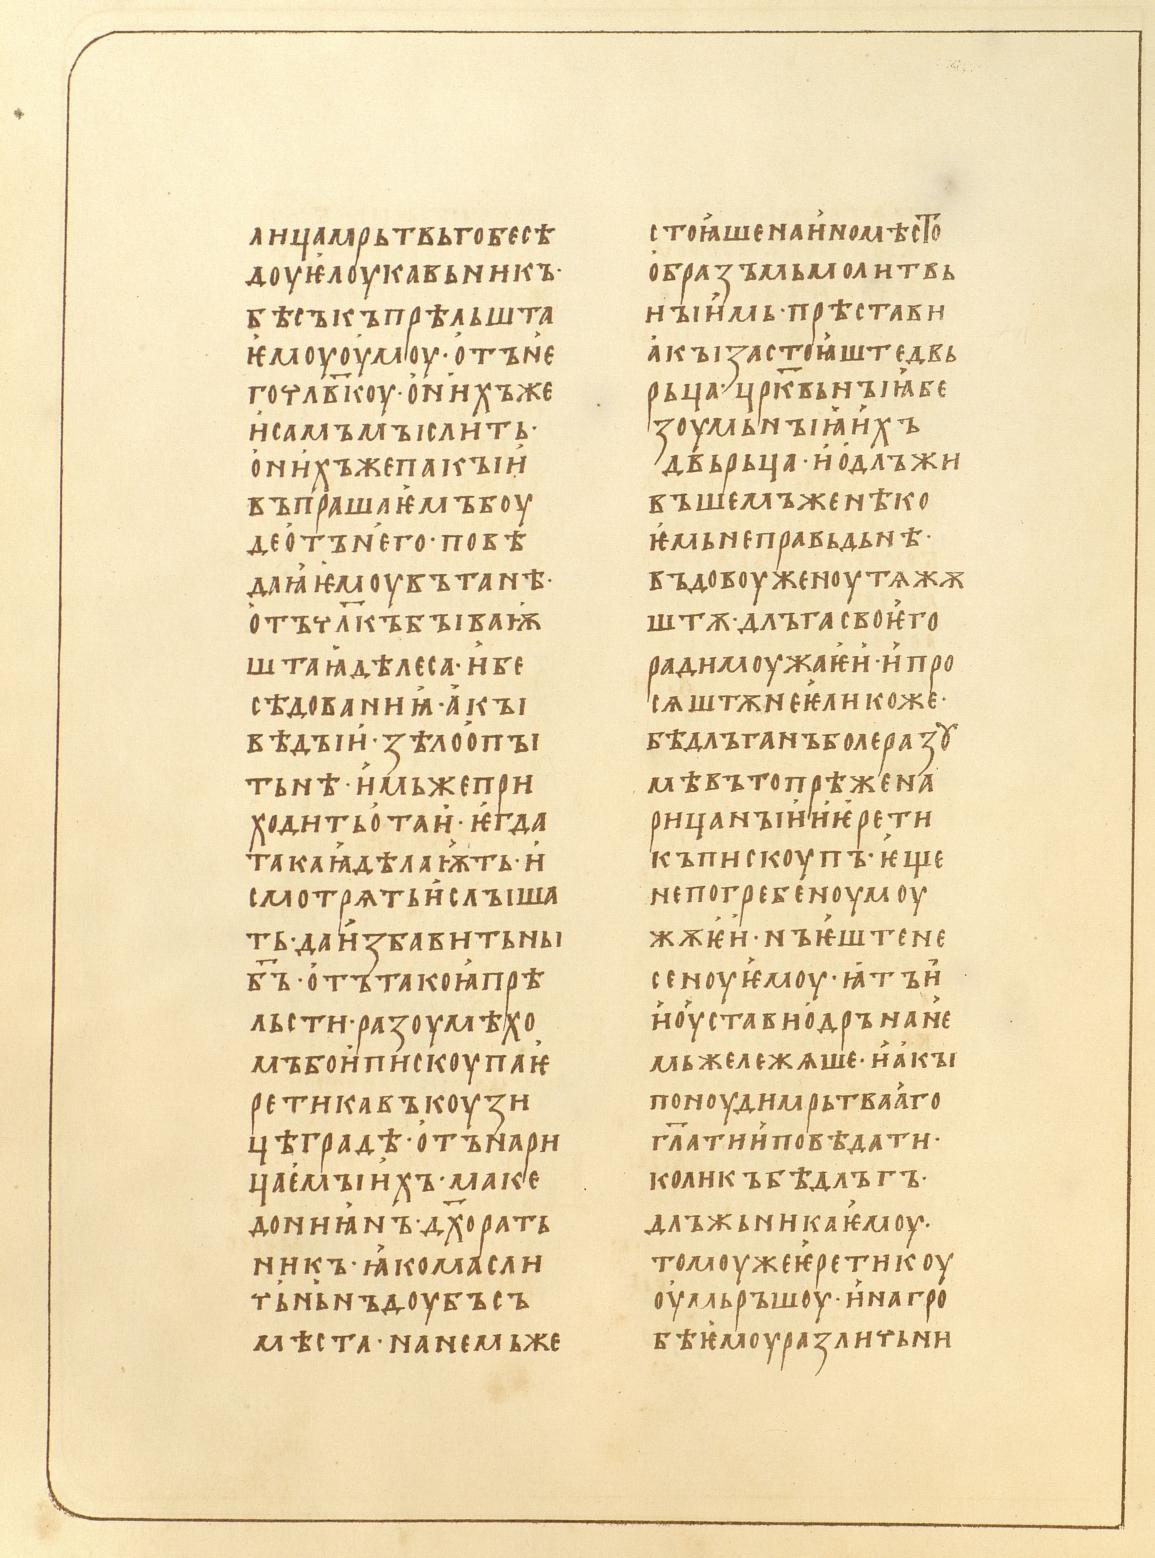 лицамрьтвьгобесѣ
доуѥлоукавьникъ·
бѣсъкъпрѣльшта
ѥмоуоумоу·отъне
гочл҃вкоу·онихъже
исамъмыслить·
онихъжепакыи
въпрашаѥмъбоу
деотънего·повѣ
даꙗѥмоувътанѣ·
отъчл҃къбываѭ
штаꙗдѣлеса·ибе
сѣдованиꙗ·акы
вѣдыи·зѣлоопы
тьнѣ·имьжепри
ходитьотаи·ѥгда
такаꙗдѣлаѭть·и
смотрѧтьислыша
ть·даизбавитьны
б҃ъ·оттътакоꙗпрѣ
льсти·разоумѣхо
мъбоиписkoупаѥ
ретикавъкоузи
цѣградѣ·отънари
цаемыихъ·маке
дониꙗнъ·дх҃орать
никъ·ꙗкомасли
тьньнъдоубъсъ
мѣста·нанемьже
стоꙗшенаиномѣсто
образъмьмолитвь
ныимь·прѣстави
акызастоꙗштедвь
рьца·цр҃квьныꙗбе
зоумьныꙗихъ
двьрьца·иодлъжи
въшемъженѣко
ѥмьнеправьдьнѣ·
въдовоуженоутѧжѫ
штѫ·длъгасвоѥго
радимоужаѥи·ипро
сѧштѫнеѥликоже·
бѣдлъганъболеразꙋ
мѣвътопрѣжена
рицаныииѥрети
къпискоупъ·ѥще
непогребеноумоу
жѫѥи·нъѥштене
сеноуѥмоу·ꙗтъи
иоуставиодрънане
мьжележѧше·иакы
поноудимрьтвааго
гл҃атииповѣдати·
коликъбѣдлъгъ·
длъжьникаѥмоу·
томоужеѥретикоу
оумьръшоу·инагро
бѣѥмоуразличьни